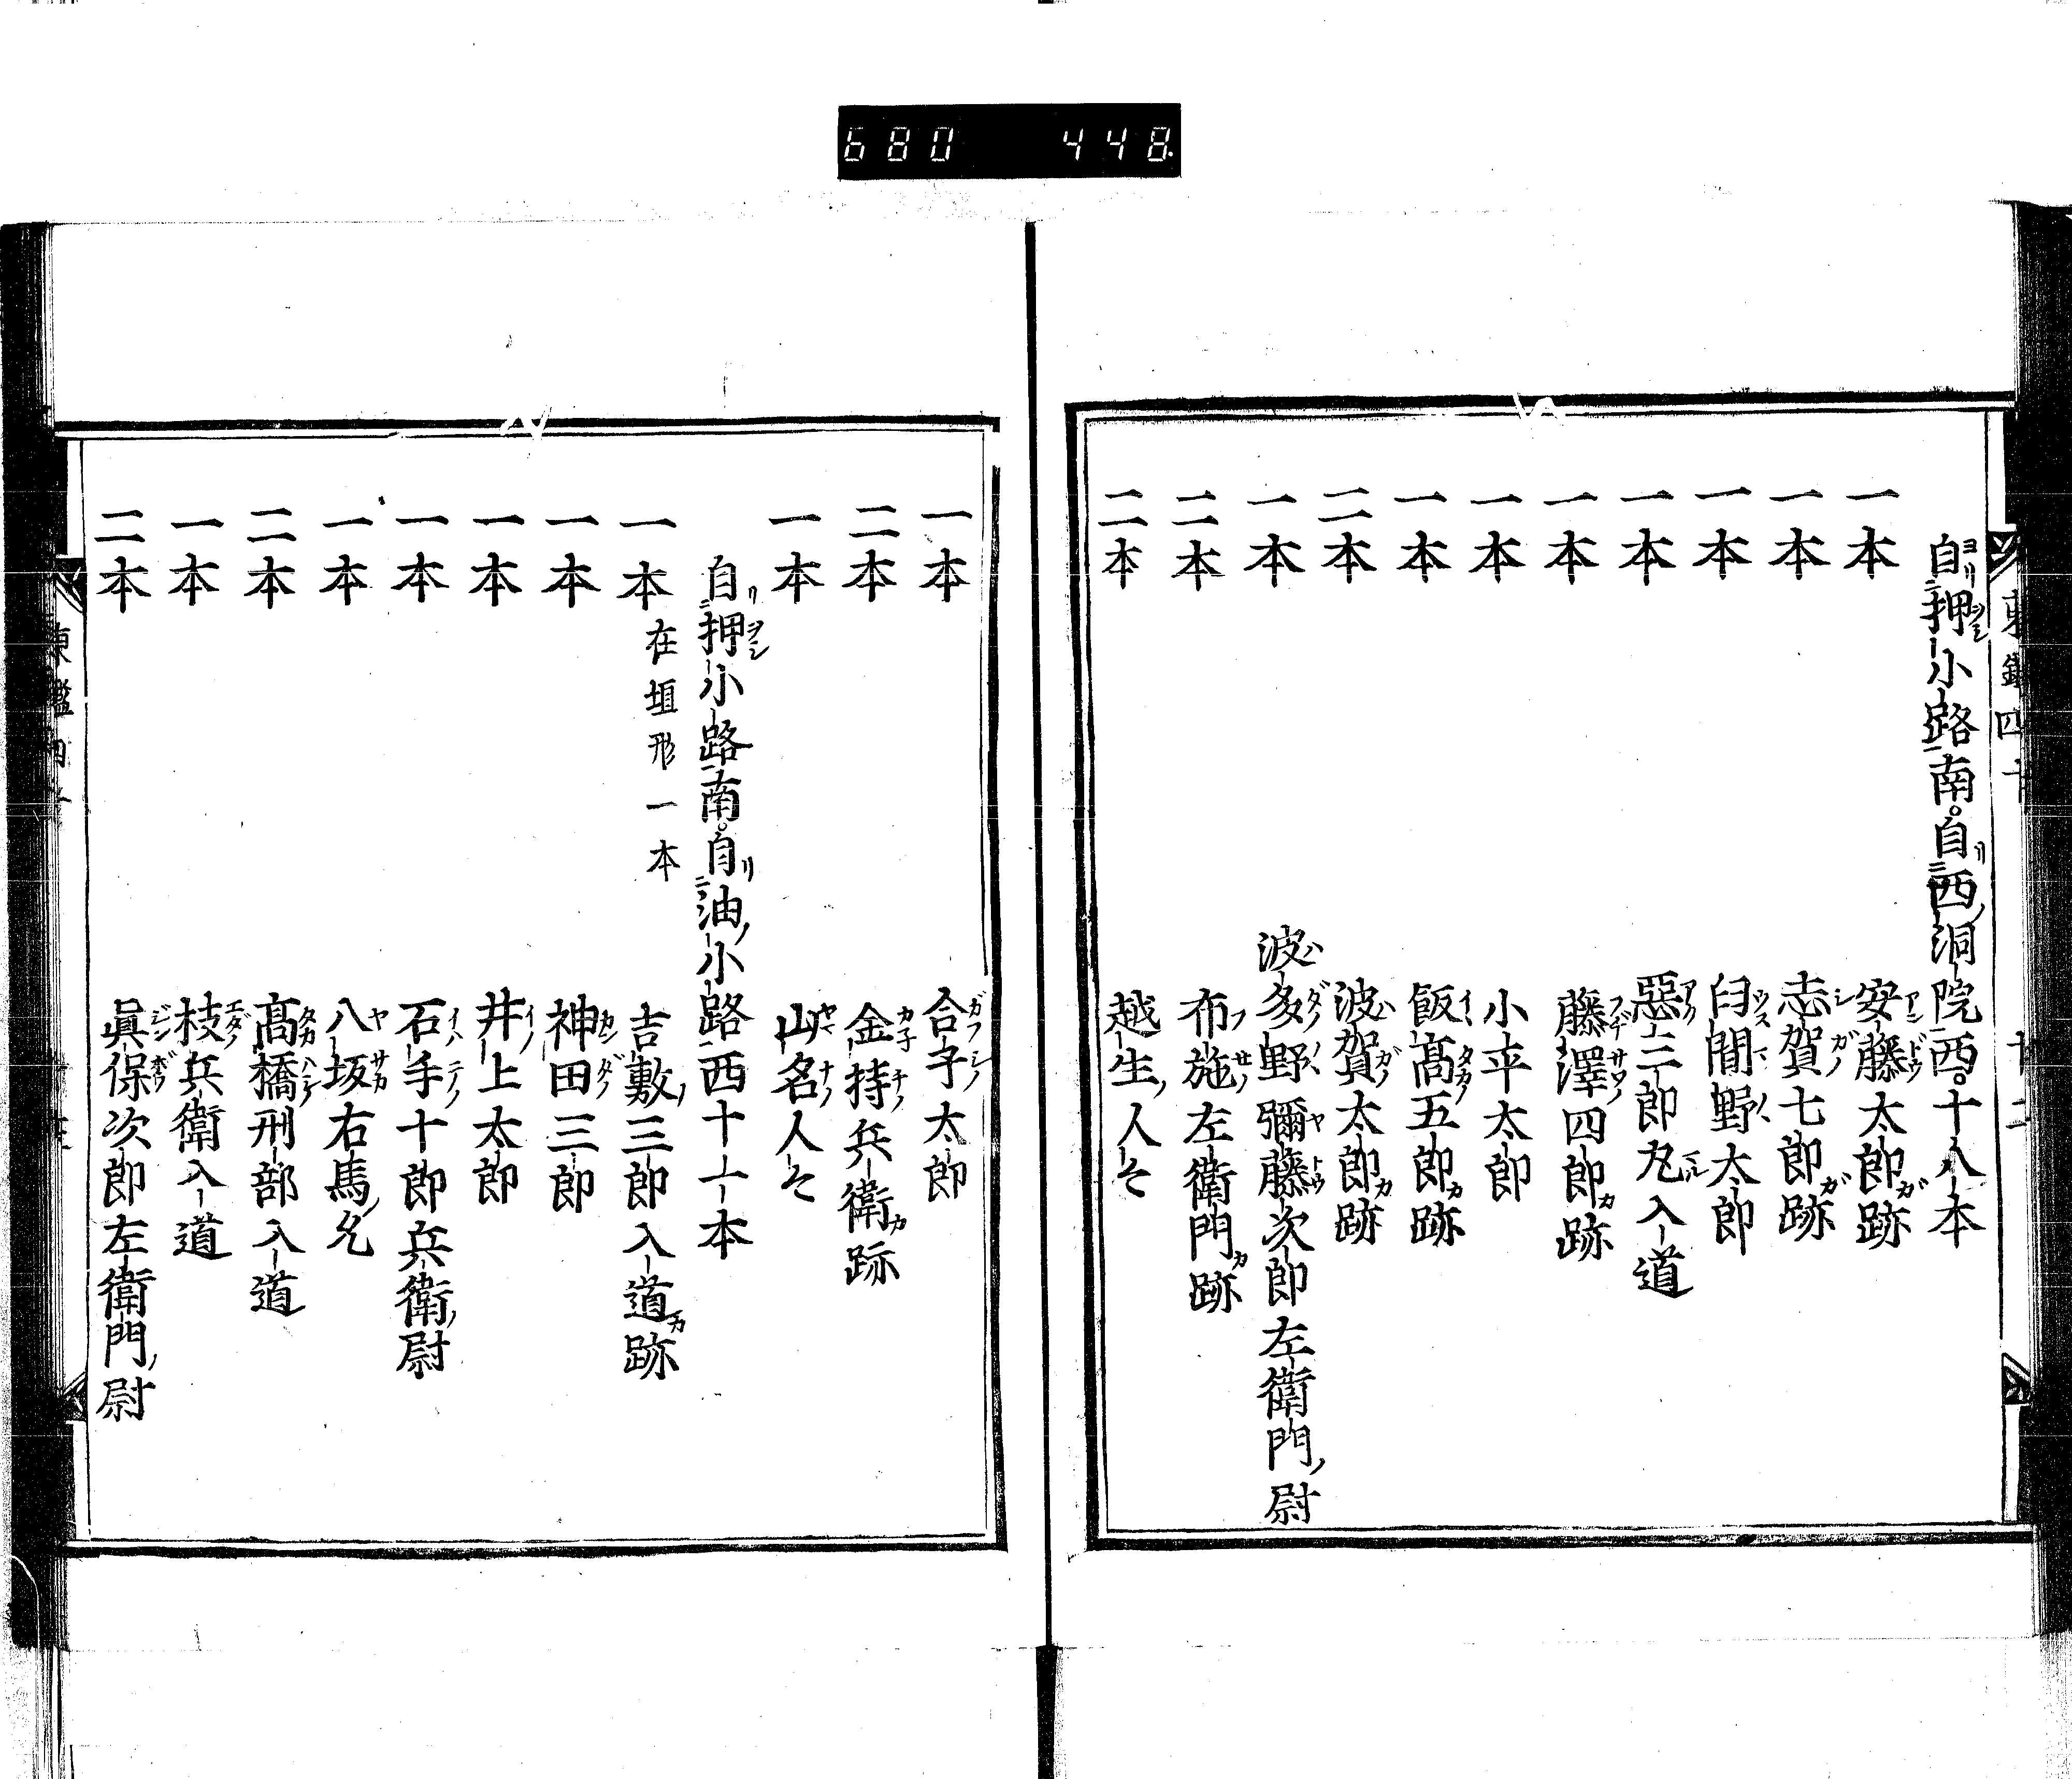 680 448
自押小路南。自西洞院西。十八本
一本 安藤太郎跡
一本 志賀七郎跡
一本 臼間野太郎
一本 惡三郎丸入道
一本 藤澤四郎跡
一本 小平太郎
一本 飯髙五郎跡
二本 波賀太郎跡
一本 波多野彌藤次郎左衛門尉
二本 布施左衛門跡
二本 越生人々
一本 合子太郎
二本 金持兵衛跡
一本 山名人々
自押小路南。自油小路西十一本
一本 在垣形一本 吉敷三郎入道跡
一本 神田三郎
一本 井上太郎
一本 石手十郎兵衛尉
一本 八坂右馬允
二本 髙橋刑部入道
一本 枝兵衛入道
二本 眞保次郎左衛門尉